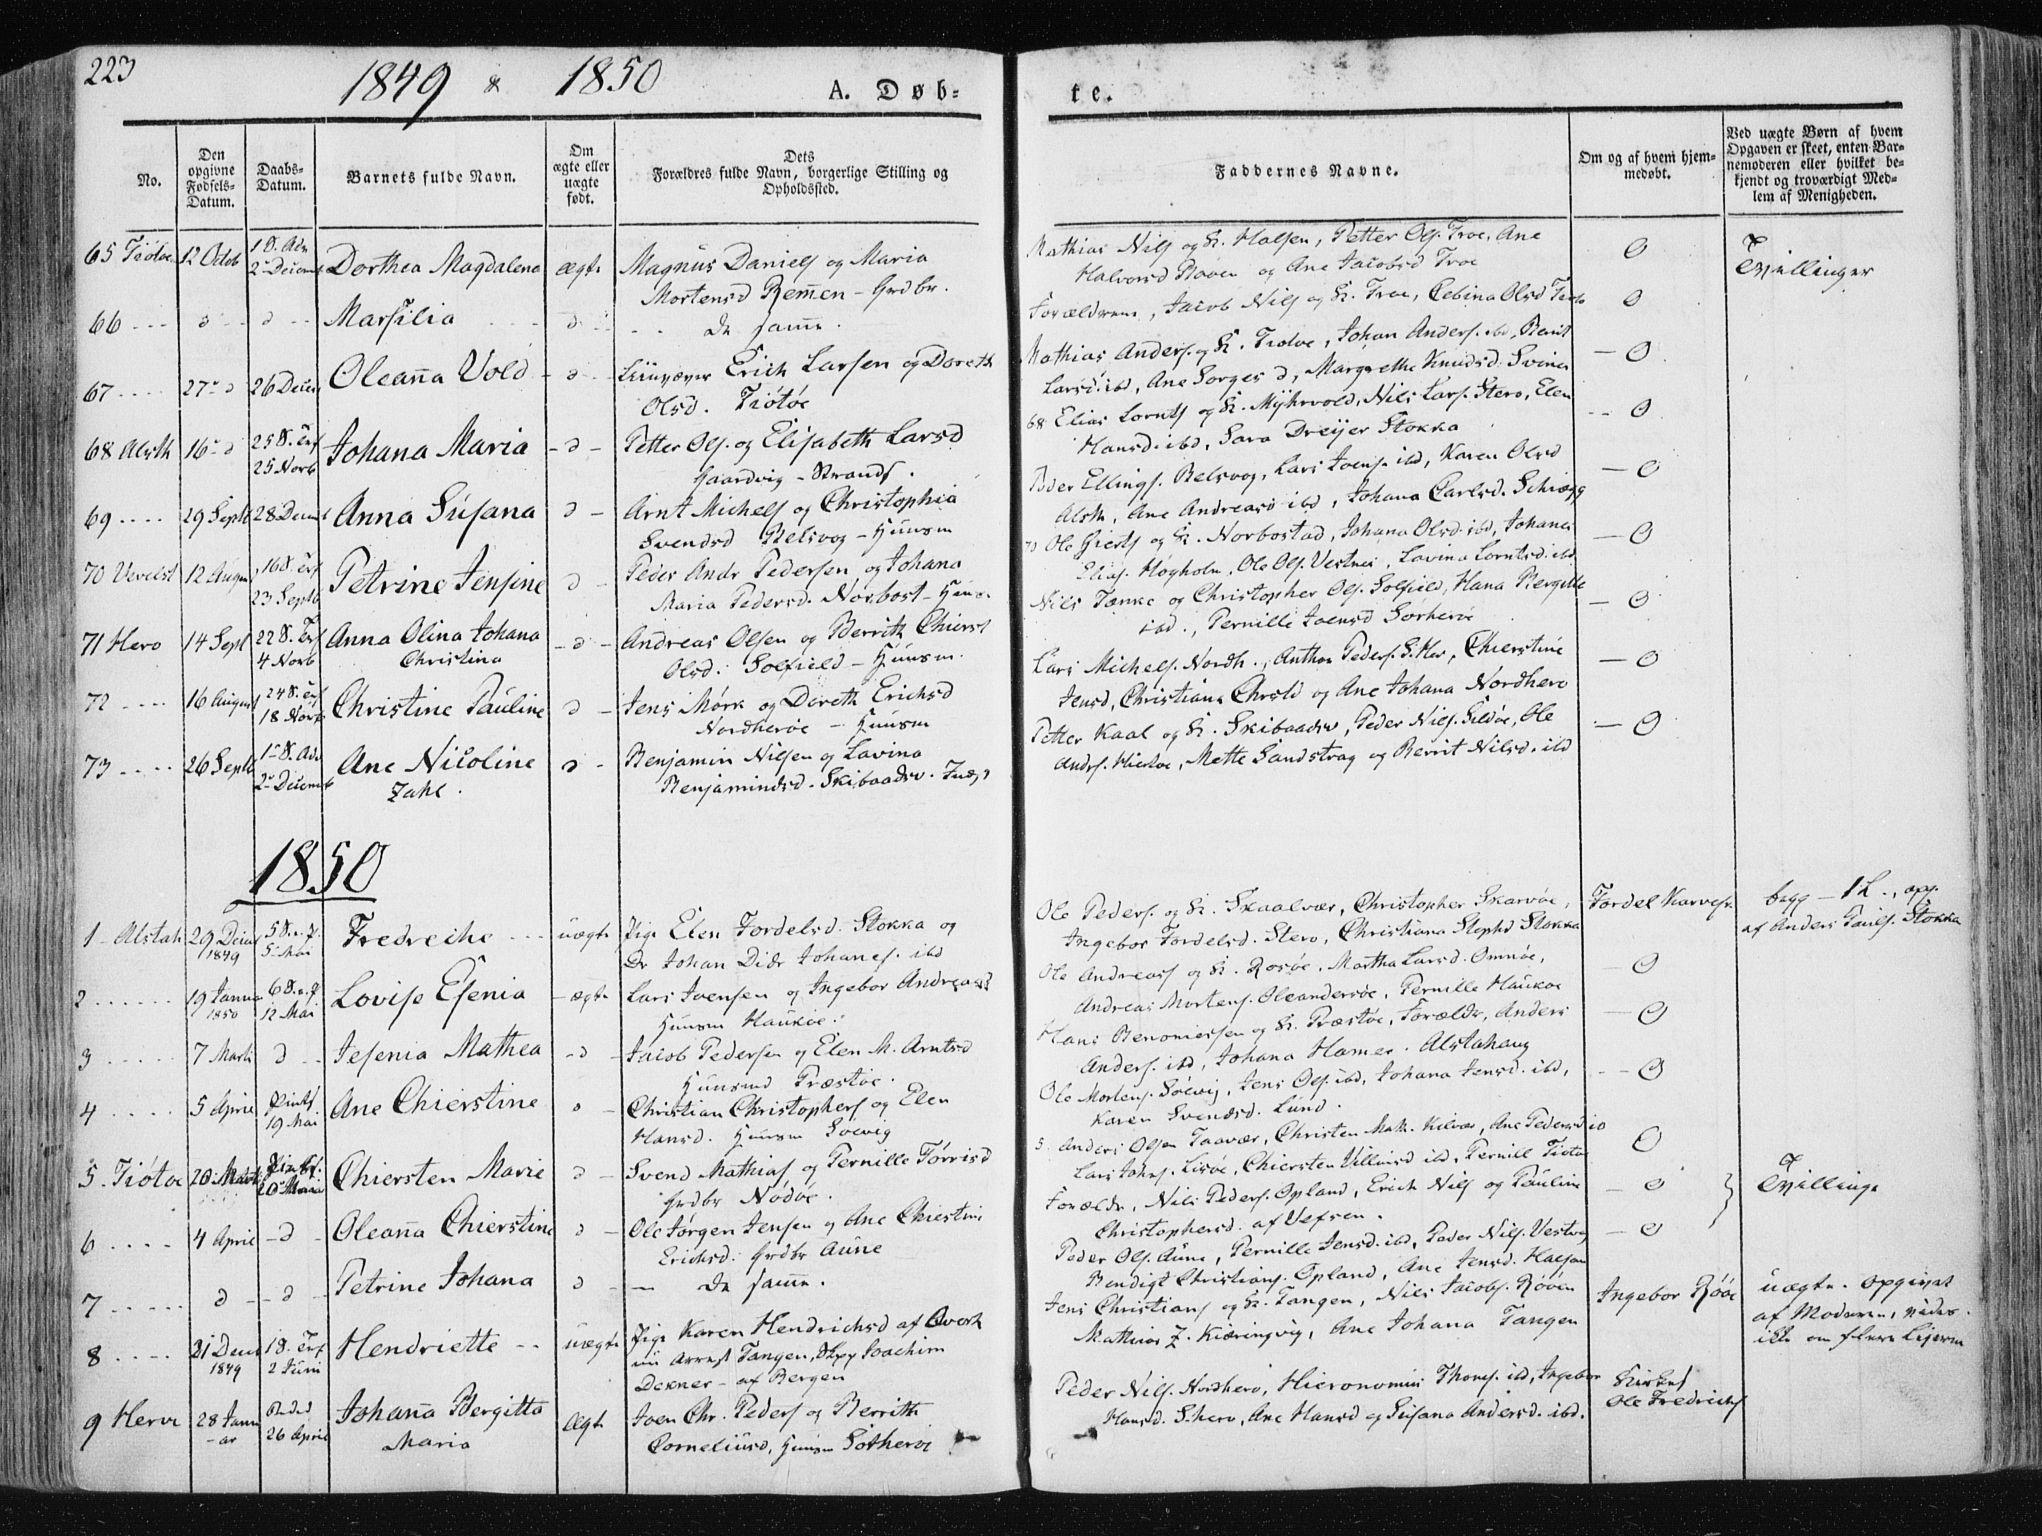 223
1849 & 1850
A. Døb-
te.
No.
Den opgivne Fødsels-Datum.
Daabs-Datum.
Barnets fulde Navn.
Om ægte eller uægte født.
Dets Forældres fulde Navn, borgerlige Stilling og Opholdssted.
Faddernes Navne.
Om og af hvem hjem-medøbt.
Ved uægte Børn af hvem Opgaven er skeet, enten Bar-nemoderen eller hvilket be-kjendt og troværdigt Med-lem af Menigheden.
65 Tiötoe 12 Octob 2 Decemb Dorthea Magdalena ægte Magnus Daniels og Maria
Mortensd Remen - Grdbr.
Mathias Nils og K. Halsen, Petter Ols. Troe, Ane
Halvorsd Röven og Ane Jacobsd Troe
0
Tvillinger
66 d d Marsilia d De samme.
Forældrene, Jacob Nils og K. Troe, Olsd
0
67 27 d 26 Decem Oleana Vold d Erich Larsen og Doreth
Olsd. Tiötöe
Mathias Anders. og K. Tiotoe, Johan Anders. ibd,
Larsd. ibd, Ane d, Margrethe Knudsd.
0
68 Alsth 16 d 25 S. Trf 25 Novb Johana Maria d Petter Ols. og Elisabeth Larsd
Gaardvig - Strands.
68 Elias Lornts og K. Myhrvold, Nils Lars. Stero, Elen
Hansd. ibd, Sara Dreijer Stokka
0
69 29 Septb 28 Decemb Anna Susana d Arnt Michels og Christophia
Svendsd Relsvog - Huusm
Peder Ellings. Belsvog, Lars Joens. ibd, Karen Olsd
Alsth, Ane Andreasd ibd, Johana Carlsd.
0
70 Vevelst 12 August 16 S. Trf 23 Septb Petrine Jensine d Peder Andr Pedersen og Johana
Maria Pedersd. Norbost - Huus.
70 Ole og K. Norbostad, Johana Olsd. ibd, Johanes
Elias. Högholm, Ole Ols. Vestnes, Lavina Lorntsd. ibd
0
71 Hero 14 Sept 22 S. Trf 4 Novb Anna Olina Johana
Christina
d Andreas Olsen og Berrith Chierst
Olsd. Solfield - Huusm.
Nils Tænke og Christopher Ols. Solfield, Hana Bergitte
ibd., Pernille Joensd Sörheröe
0
72 16 August 24 S. Trf 18 Novb Christine Pauline d Jens Mørk og Doreth Erichsd
Nordheröe - Huusm
Lars Michels. Nordh., Anthon Peders. S. Her, Chierstine
Jensd, Christiana Chrstd og Ane Johana Nordhero
0
73 26 Septb 2 Decemb Ane Nicoline
Zahl.
d Benjamin Nilsen og Lavina
Benjaminsd. Skibaadsv.
Petter Kaal og K. Skibaadsv, Peder Nils. Sildöe, Ole
Anders. , Mette Sandstrag og Berrit Nilsd. ibd
0
1850
1 Alstah 29 Decem 1849 5 Mai Fredreike uægte Pige Elen Tordelsd. Stokka og
Dr Johan Didr Johanes. ibd
Ole Peders. og K. Skaalvær, Christopher Skarvöe,
Ingebor Tordelsd. Stero, Christiana Stephd Stokka
Tordel
af Anders Pauls. Stokka
2 19 Janua 1850 12 Mai Lovise Esenia ægte Lars Joensen og Ingebor Andreasd
Huusm Haukoe.
Ole Andreas og K. Rosöe, Martha Larsd. Omnöe,
Andreas Mortens. Oleandersöe, Pernille Haukoe
0
3 7 Marts d Jesenia Mathea d Jacob Pedersen og Elen M. Arntsd
Huusmd Præstöe.
Hans og K. Præstöe, Forældr, Anders
Anders. ibd, Johana Hamer. Alstahaug
0
4 5 April 19 Mai Ane Chierstine d Christian Christophers og Elen
Hansd. Huusm Solvig
Ole Mortens. Solvig, Jens Ols. ibd, Johana Jensd. ibd,
Karen Svendsd. Lund.
0
5 Tiötoe 20 Marts 20 Mai Chiersten Marie d Svend Mathias og Pernille Törrisd
Grdbr Nödöe.
5 Anders Olsen Taavær, Christen Math. , Ane Pedersd
Lars Johns. , Chiersten ibd, Pernill Tiotoe
0
6 4 April d Oleana Chierstine d Ole Jørgen Jensen og Ane Chiestine
Erichsd. Grdbr Aune
Forældr, Nils Peders. Opland, Erich Nils og Pauline
Christophersd. af Vefsen.
0
Tvillinge
7 d d Petrine Johana d De samme.
Peder Ols. Aune, Pernille Jensd. ibd, Peder Nils.
Bendigt Christians. Opland, Ane Jensd. Halsen
0
8 21 Decem 1849 2 Juni Hendriette uægte Pige Karen Hendrichsd af
Tangen, Joachim
Dekner - af Bergen
Jens Christians og K. Tangen, Nils Jacobs. Röven
Mathias Z. Kiæringvig, Ane Johana Tangen
Ingebor Rööe
uægte. opgivet
af Moderen,
om flere Lejerm
9 Herre 28 Janu-ar 26 April Johana Bergitta
Maria
ægte Joen Chr. Peders og Berrith
Corneliusd, Huusm
Peder Nils. Nordhero, Hieronomus Thoms. ibd, Ingebor
Hansd. S. hero, Ane Hansd og Susana Andersd. ibd.
Ole Fredrichs